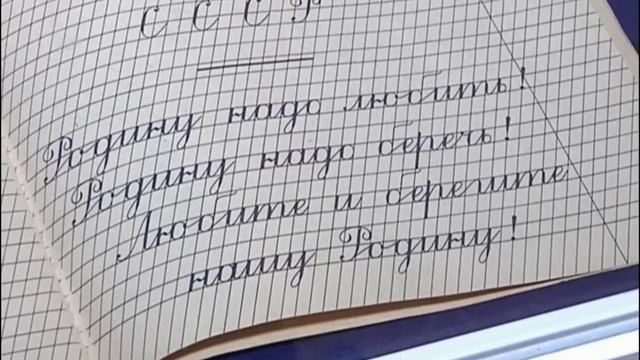 С С С Р
Родину надо любить!
Родину надо беречь!
Любите и берегите
нашу Родину!